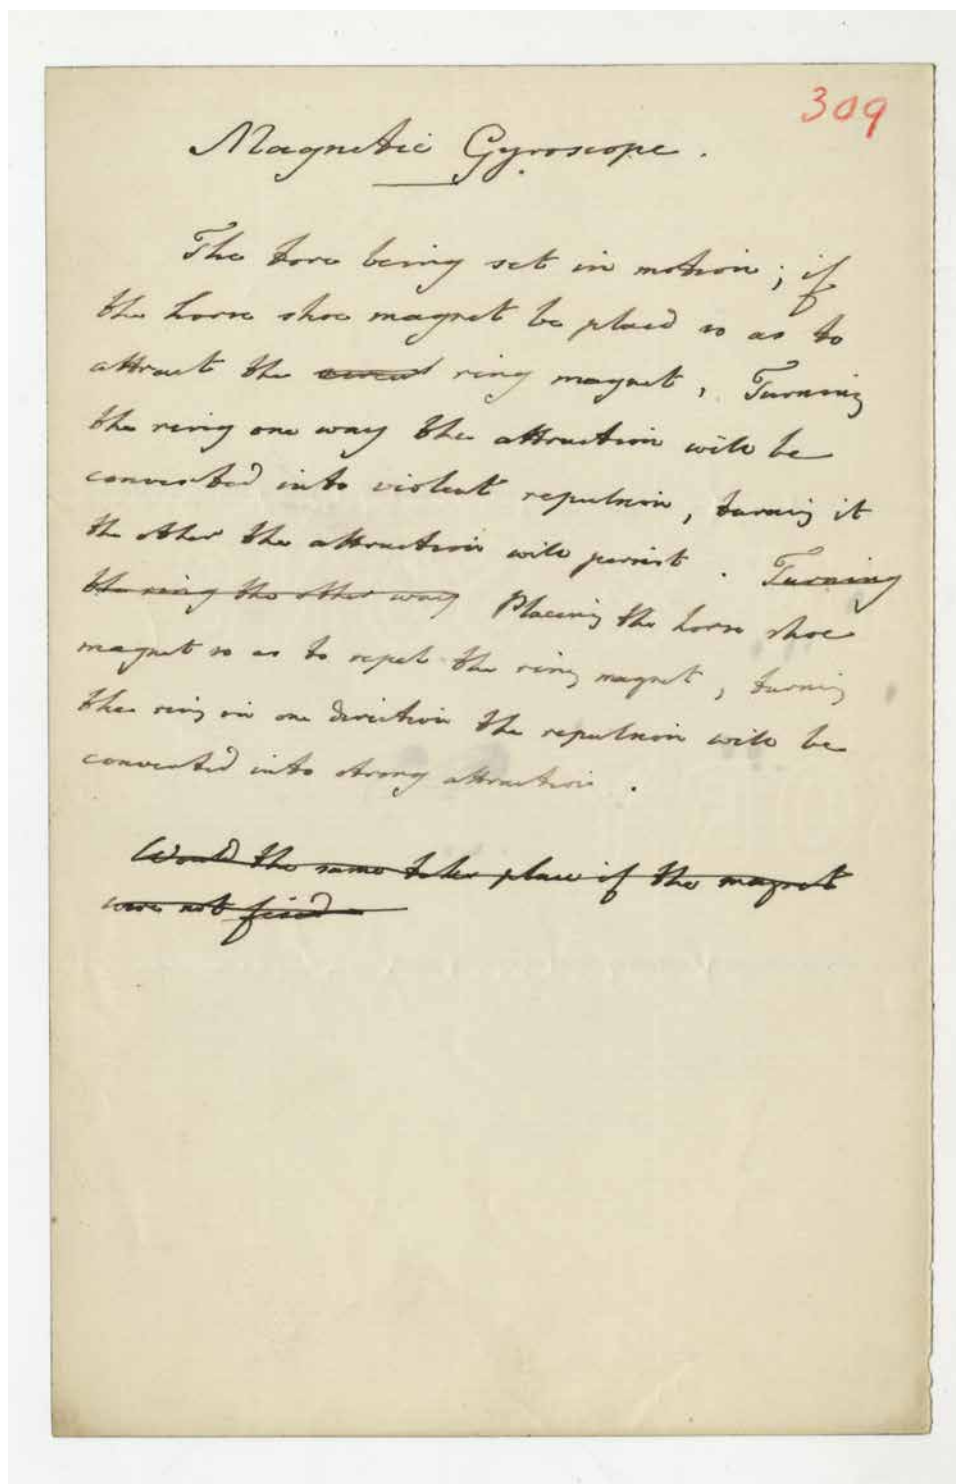 309
Magnetic Gyroscope.
The tore being set in motion; if
the horse shoe magnet be placed so as to
attract the ring magnet, Turning
the ring one way the attraction will be
converted into violent repulsion, turning it
the other the attraction will persist. Turning
the ring the other way Placing the horse shoe
magnet so as to repel the ring magnet, turning
the ring in one direction the repulsion will be
converted into strong attraction.
Would the same take place if the magnet
were not fixed